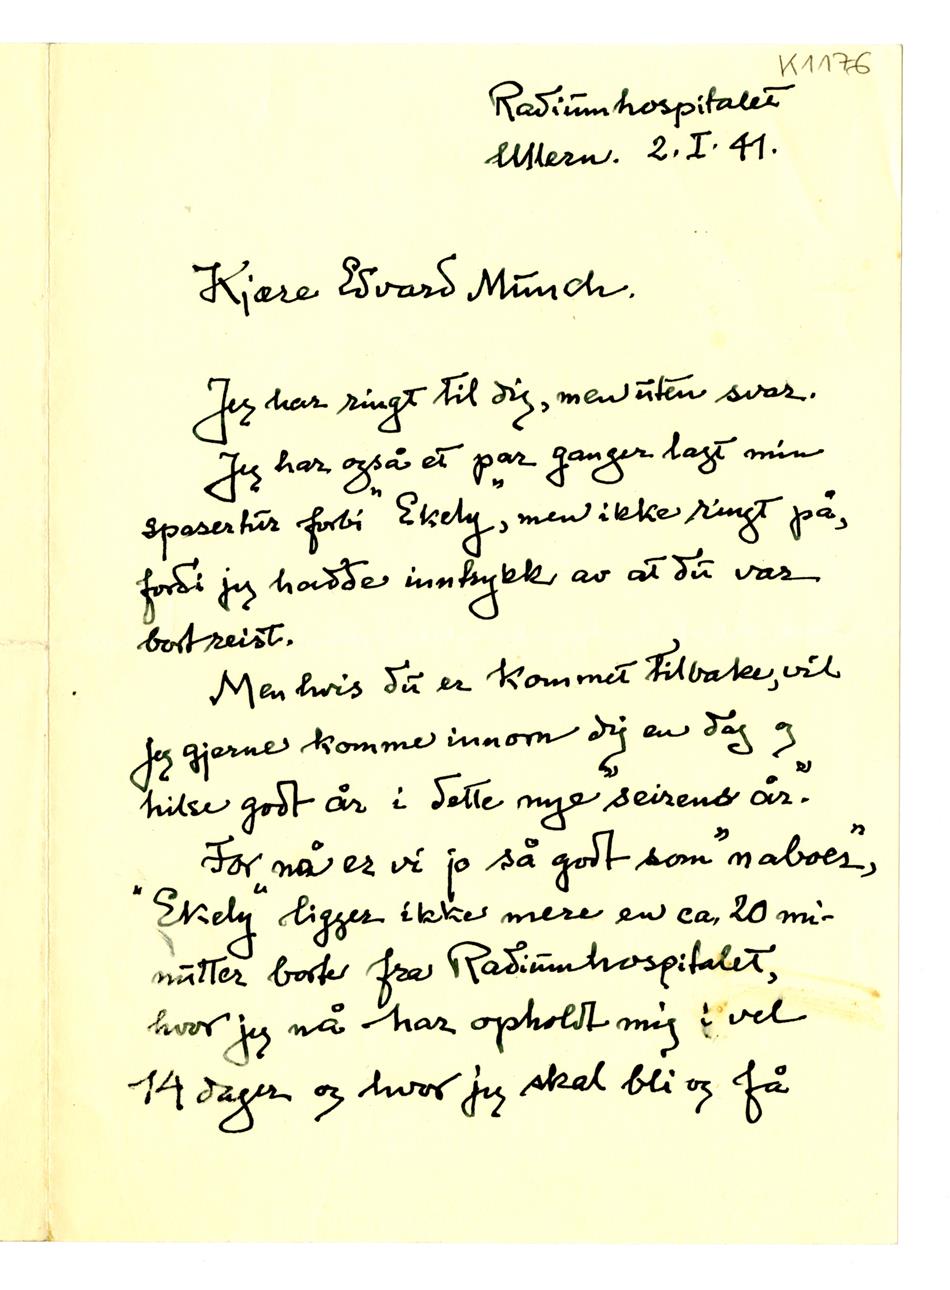 K1176
Radiumhospitalet
Ullern. 2. I. 41.
Kjære Edvard Munch.
Jeg har ringt til dig, men uten svar.
Jeg har også et par ganger lagt min
spasertur forbi "Ekely", men ikke ringt på,
fordi jeg hadde inntrykk av at du var
bortreist.
Men hvis du er kommet tilbake, vil
jeg gjerne komme innom dig en dag og
hilse godt år i dette nye "seirens år".
For nå er vi jo så godt som "naboer",
"Ekely" ligger ikke mere en ca. 20 mi-
nutter borte fra Radiumhospitalet,
hvor jeg nå har opholdt mig i vel
14 dager og hvor jeg skal bli og få